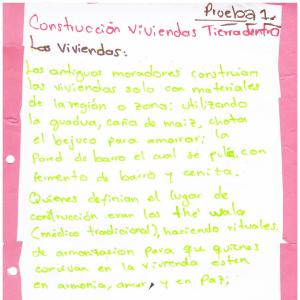 Prueba 1.
Construcción Viviendas Tierradentro
Las Viviendas:
Los antiguos moradores construian
las viviendas solo con materiales
de la región o zona: utilizando
la guadua, caña de maiz, chota
el bejuco para amarrar; la
Pared de barro el cual se pulia con
femento de barro y ceniza.
Quienes definian el lugar de
construcción eran los thê wala
(médico tradicional), haciendo rituales
de armonización para que quienes
convivan en la vivienda esten
en armonia, amor, y en Paz;